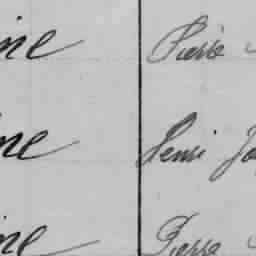 ine Pierre
ine Henri Jo
ine Pierre